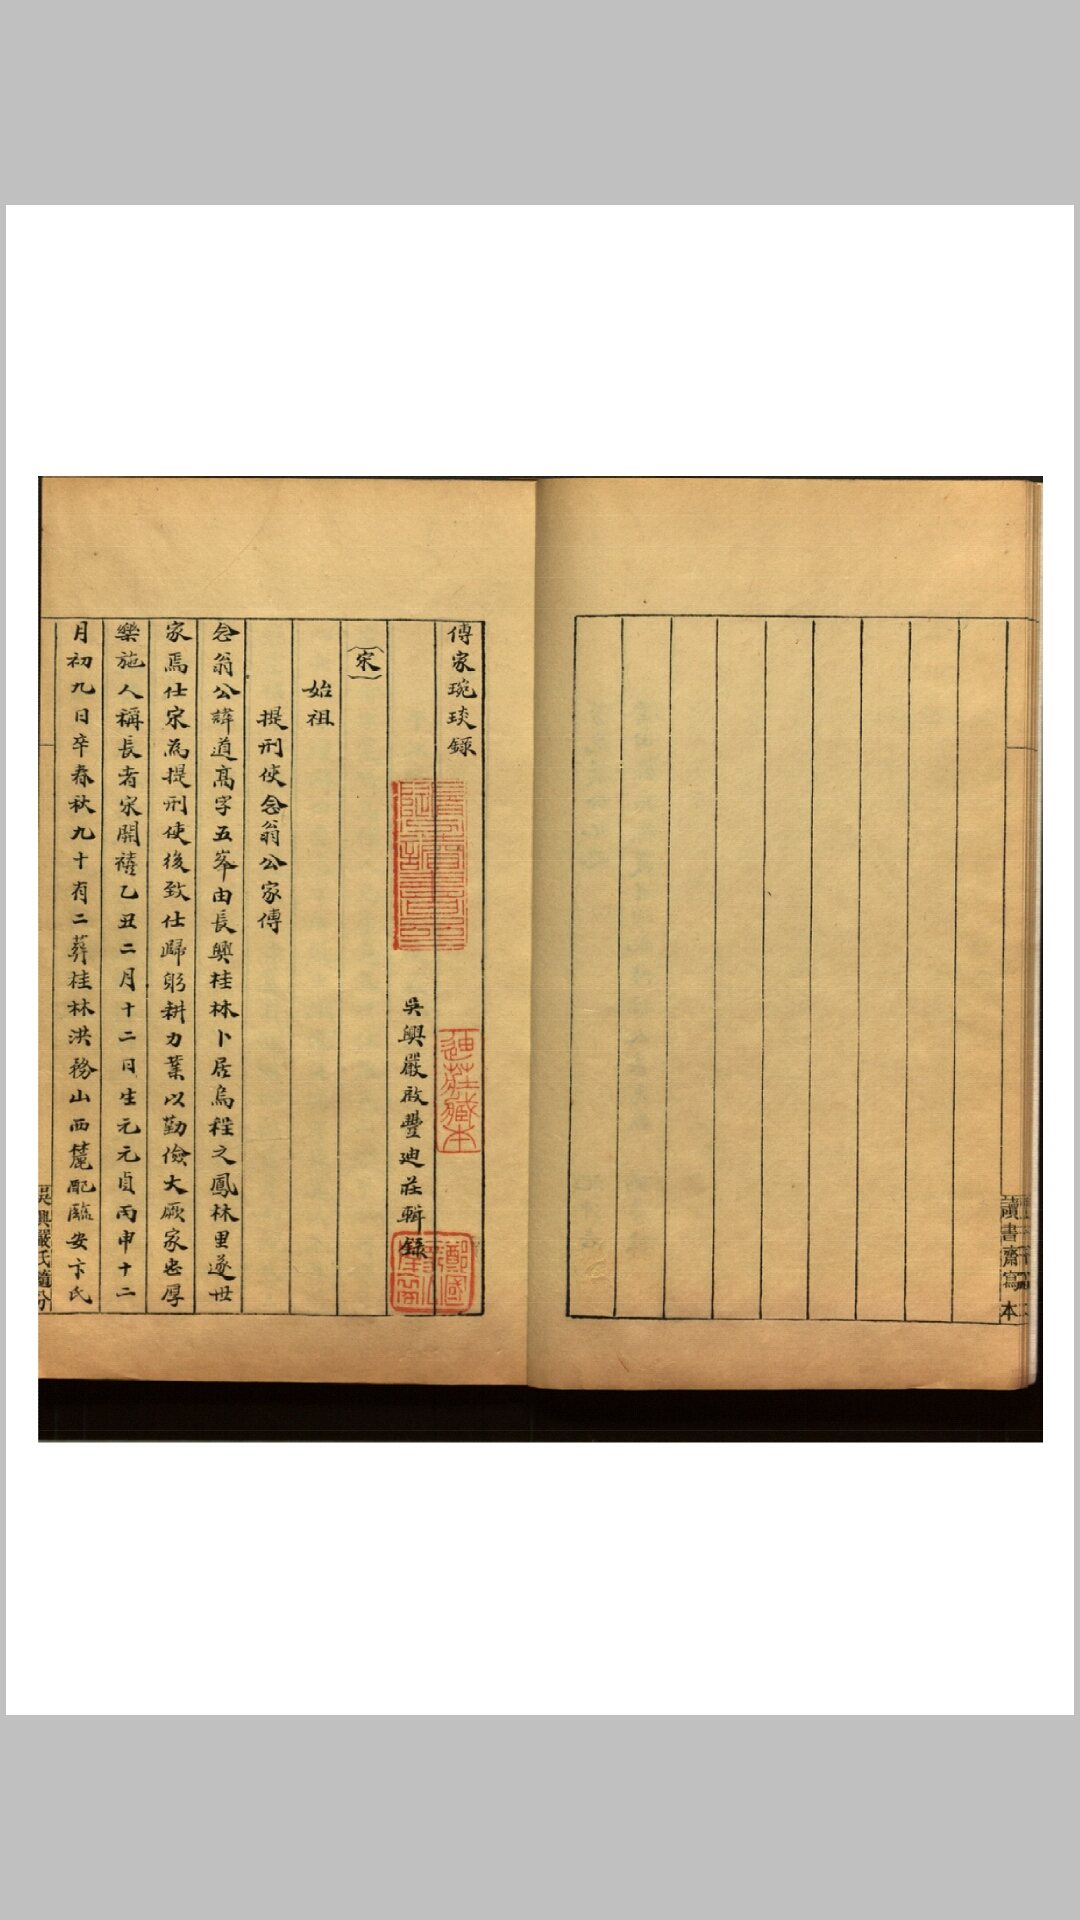 讀書齋寫本
傳家琬琰錄
吳興嚴啟豐迪莊輯錄
迪莊臧本
宋
始祖
提刑使念翁公家傳
念翁公諱道高字五峯由長興桂林卜居烏程之鳳林里遂世
家焉仕宋為提刑使後致仕歸躬耕力業以勤儉大厥家忠厚
樂施人稱長者宋開禧乙丑二月十二日生元元貞丙申十二
月初九日卒春秋九十有二葬桂林洪務山西麓配臨安卞氏
吳興嚴氏隨分